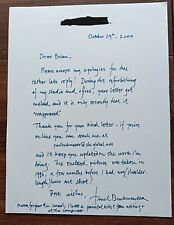 October 29th, 2004
Dear Brian,
Please accept my apologies for the
rather late reply! During the refurbishing
of my studio and office, your letter got
mislaid, and it is only recently that it
"reappeared".
Thank you for your kind letter - if you're
on line you can reach me at
and I'll keep you updated on the work I'm
doing. The enclosed picture was taken in
1996, a few months before I had my shoulder-
length hair cut short!
Best wishes,
Please forgive the scrawl; I have a